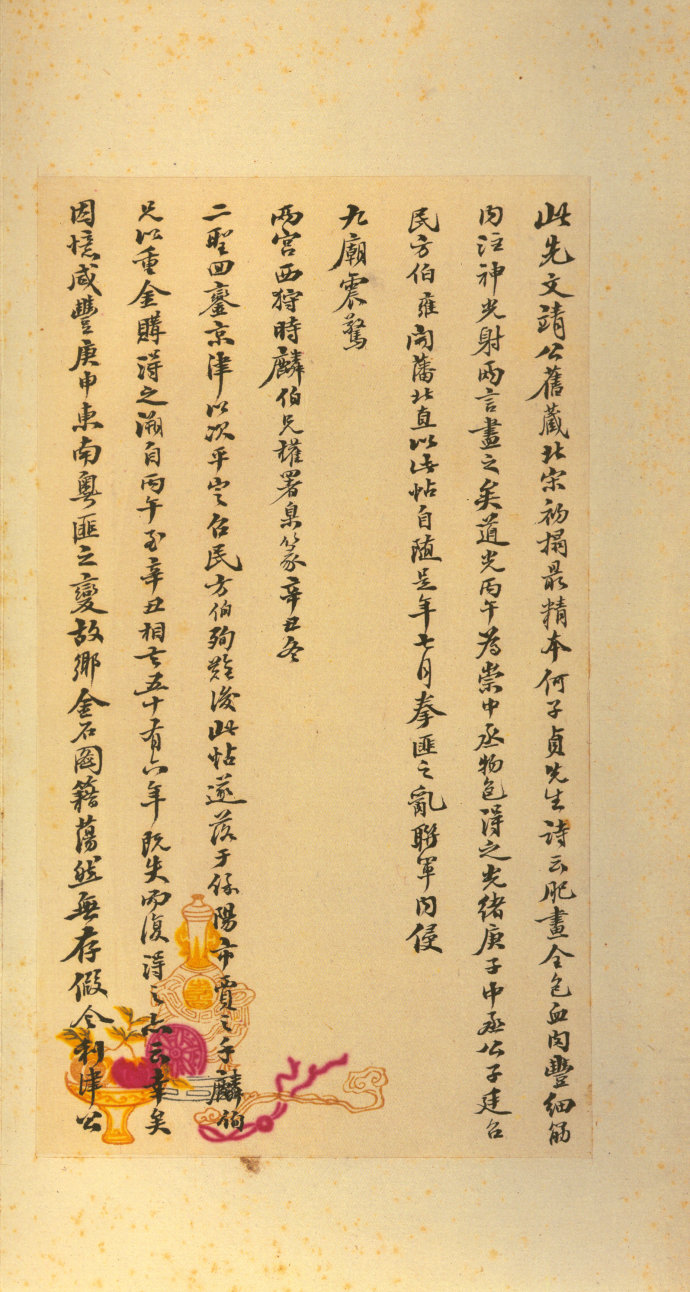 此先文靖公舊藏北宋初搨最精本何子貞先生詩云肥畫全包血肉豐細筋
内注神光射兩言盡之矣道光丙午為崇中丞物色得之光緒庚子中丞公子廷召
民方伯雍開藩北直以此帖自随是年七月拳匪之亂聯軍内侵
九廟震驚
兩宮西狩時麟伯兄權署臬篆辛丑冬
二聖回鑾京津以次平定召民方伯殉難後此帖遂落于保陽市賈之手麟伯
兄以重金購得之溯自丙午至辛丑相去五十有六年既失而復得之亦云幸矣
因憶咸豐庚申東南粤匪之變故鄉金石圖籍蕩然無存假令利津公